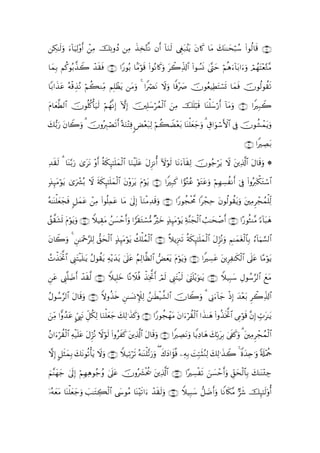 قَالُوا۟ سُبْحَٰنَكَ مَا كَانَ يَنۢبَغِى لَنَآ أَن نَّتَّخِذَ مِن دُونِكَ مِنْ أَوْلِيَآءَ وَلَٰكِن
مَّتَّعْتَهُمْ وَءَابَآءَهُمْ حَتَّىٰ نَسُوا۟ ٱلذِّكْرَ وَكَانُوا۟ قَوْمًۢا بُورًا ۝ فَقَدْ كَذَّبُوكُم بِمَا
تَقُولُونَ ۝ فَمَا تَسْتَطِيعُونَ صَرْفًا وَلَا نَصْرًا ۚ وَمَن يَظْلِم مِّنكُمْ نُذِقْهُ عَذَابًا
كَبِيرًا ۝ وَمَآ أَرْسَلْنَا قَبْلَكَ مِنَ ٱلْمُرْسَلِينَ إِلَّآ إِنَّهُمْ لَيَأْكُلُونَ ٱلطَّعَامَ
وَيَمْشُونَ ۝ فِى ٱلْأَسْوَاقِ ۗ وَجَعَلْنَا بَعْضَكُمْ لِبَعْضٍ فِتْنَةً أَتَصْبِرُونَ ۝ وَكَانَ رَبُّكَ
بَصِيرًا ۝
۞ وَقَالَ ٱلَّذِينَ لَا يَرْجُونَ ۝ لِقَآءَنَا لَوْلَآ أُنزِلَ عَلَيْنَا ٱلْمَلَٰٓئِكَةُ أَوْ نَرَىٰ رَبَّنَا ۗ لَقَدِ
ٱسْتَكْبَرُوا۟ فِىٓ أَنفُسِهِمْ وَعَتَوْ عُتُوًّا كَبِيرًا ۝ يَوْمَ يَرَوْنَ ٱلْمَلَٰٓئِكَةَ لَا بُشْرَىٰ يَوْمَئِذٍ
لِّلْمُجْرِمِينَ ۝ وَيَقُولُونَ حِجْرًا مَّحْجُورًا ۝ وَقَدِمْنَآ إِلَىٰ مَا عَمِلُوا۟ مِنْ عَمَلٍ فَجَعَلْنَٰهُ
هَبَآءً مَّنثُورًا ۝ أَصْحَٰبُ ٱلْجَنَّةِ يَوْمَئِذٍ خَيْرٌ مُّسْتَقَرًّا وَأَحْسَنُ مَقِيلًا ۝ وَيَوْمَ تَشَقَّقُ
ٱلسَّمَآءُ بِٱلْغَمَٰمِ وَنُزِّلَ ٱلْمَلَٰٓئِكَةُ تَنزِيلًا ۝ ٱلْمُلْكُ يَوْمَئِذٍ ٱلْحَقُّ لِلرَّحْمَٰنِ ۚ وَكَانَ
يَوْمًا عَلَى ٱلْكَٰفِرِينَ عَسِيرًا ۝ وَيَوْمَ يَعَضُّ ٱلظَّالِمُ عَلَىٰ يَدَيْهِ يَقُولُ يَٰلَيْتَنِى ٱتَّخَذْتُ
مَعَ ٱلرَّسُولِ سَبِيلًا ۝ يَٰوَيْلَتَىٰ لَيْتَنِى لَمْ أَتَّخِذْ فُلَانًا خَلِيلًا ۝ لَّقَدْ أَضَلَّنِى عَنِ
ٱلذِّكْرِ بَعْدَ إِذْ جَآءَنِى ۗ وَكَانَ ۝ ٱلشَّيْطَٰنُ لِلْإِنسَٰنِ خَذُولًا ۝ وَقَالَ ٱلرَّسُولُ
يَٰرَبِّ إِنَّ قَوْمِى ٱتَّخَذُوا۟ هَٰذَا ٱلْقُرْءَانَ مَهْجُورًا ۝ وَكَذَٰلِكَ جَعَلْنَا لِكُلِّ نَبِىٍّ عَدُوًّا مِّنَ
ٱلْمُجْرِمِينَ ۗ وَكَفَىٰ بِرَبِّكَ هَادِيًا وَنَصِيرًا ۝ وَقَالَ ٱلَّذِينَ كَفَرُوا۟ لَوْلَا نُزِّلَ عَلَيْهِ ٱلْقُرْءَانُ
جُمْلَةً وَٰحِدَةً ۚ كَذَٰلِكَ لِنُثَبِّتَ بِهِۦ فُؤَادَكَ ۖ وَرَتَّلْنَٰهُ تَرْتِيلًا ۝ وَلَا يَأْتُونَكَ بِمَثَلٍ إِلَّا
جِئْنَٰكَ بِٱلْحَقِّ وَأَحْسَنَ تَفْسِيرًا ۝ ٱلَّذِينَ يُحْشَرُونَ ۝ عَلَىٰ وُجُوهِهِمْ إِلَىٰ جَهَنَّمَ
أُو۟لَٰٓئِكَ ۝ شَرٌّ مَّكَانًا وَأَضَلُّ سَبِيلًا ۝ وَلَقَدْ ءَاتَيْنَا مُوسَى ٱلْكِتَٰبَ وَجَعَلْنَا مَعَهُۥٓ